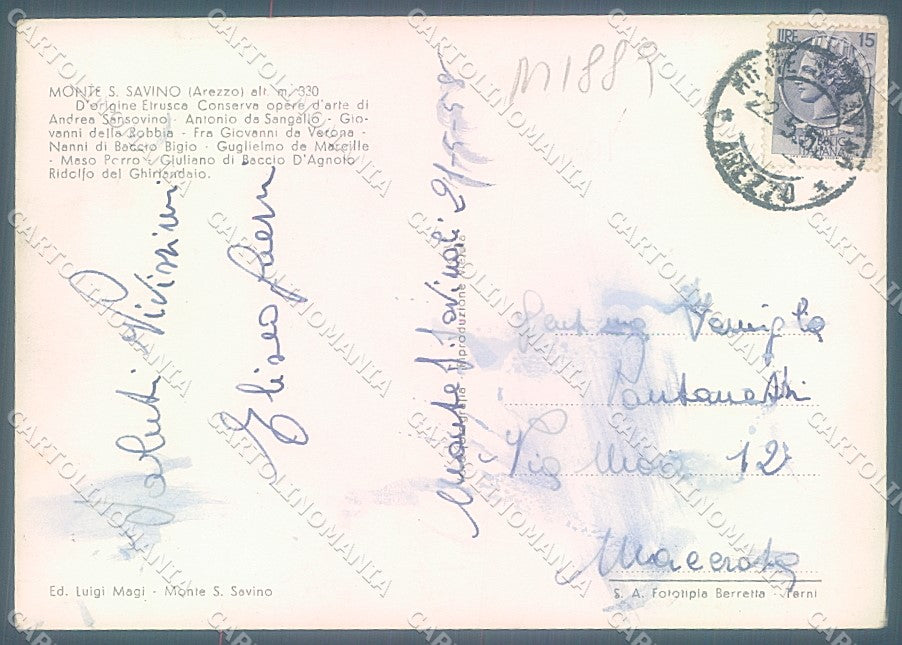 MONTE S. SAVINO (Arezzo) alt. m. 330
D'origine Etrusca Conserva opere d'arte di
Andrea Sansovino - Antonio da Sangallo - Gio-
vanni della Robbia - Fra Giovanni da Verona -
Nanni di Baccio Bigio - Guglielmo de Marcille
- Maso Porro - Giuliano di Baccio D'Agnolo
Ridolfo del Ghirlandaio.
Saluti Vivissimi
Eliseo
Monte S. Savino li 21-5-58
Fotografia - Riproduzione
M1889
LIRE 15
REPUBBLICA
ITALIANA
MONTE S. SAVINO
22.5.58
AREZZO
Gent.ma Famiglia
Pantanetti
Via Mozzi 12
Macerata
Ed. Luigi Magi - Monte S. Savino
S. A. Fototipia Berretta - Terni
CARTOLINOMANIA